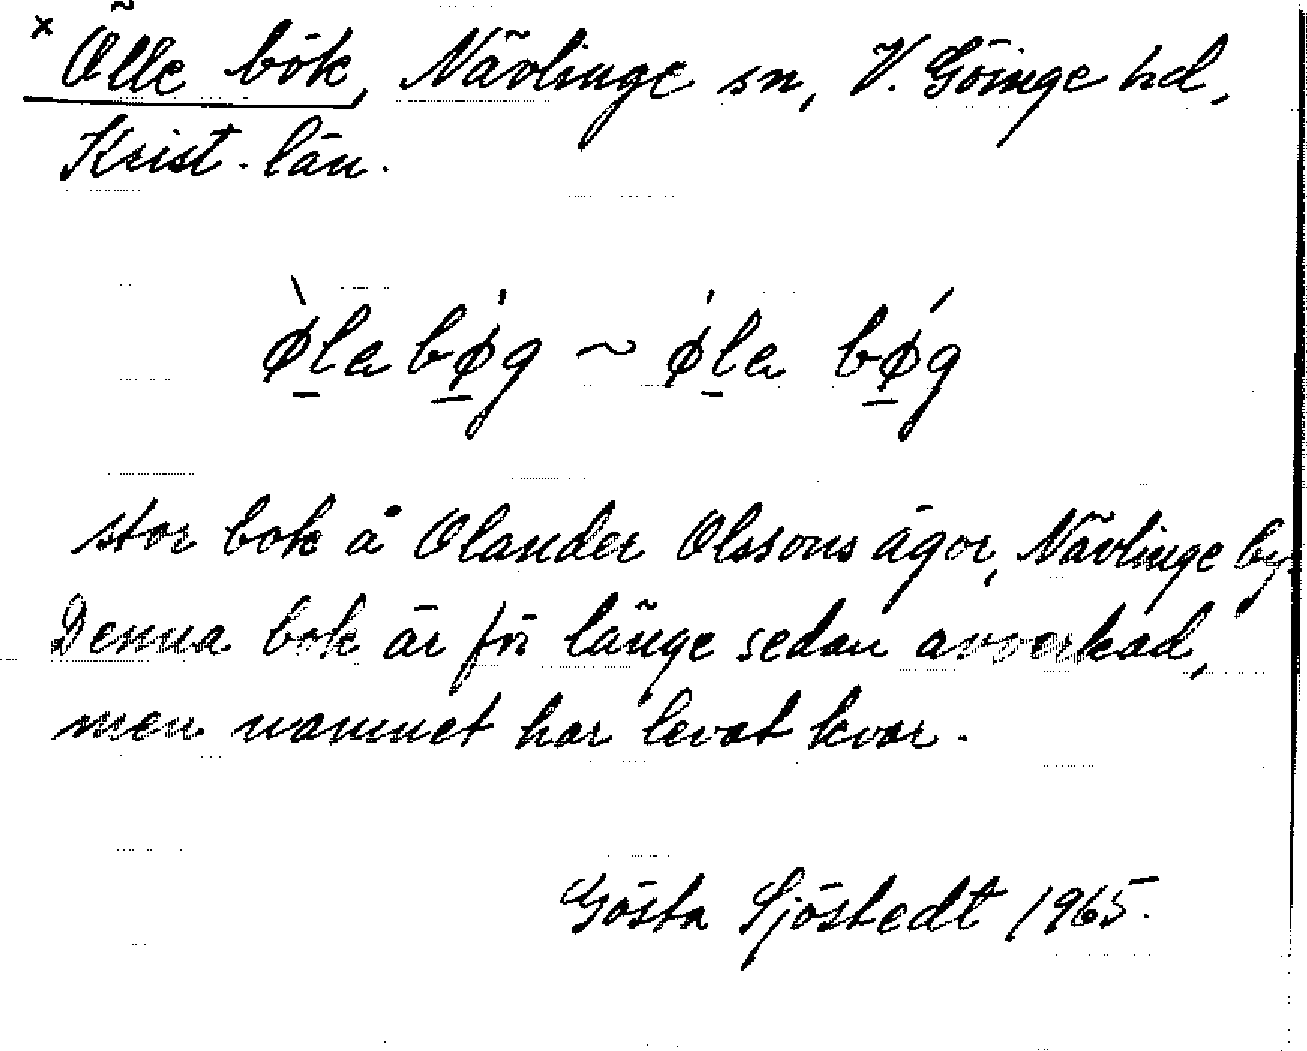 × Ölle bök, Nävlinge sn, V. Göinge hd,
Krist. län.
ø̀la bǿg ~ ǿla bǿg
stor bok å Olander Olssons ägor, Nävlinge by.
Denna bok är för länge sedan avverkad,
men namnet har levat kvar.
Gösta Sjöstedt 1965.